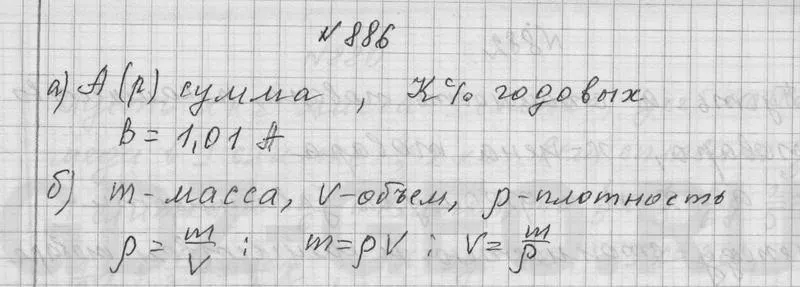 № 886
а) А (р) сумма, К% годовых
В = 1,01 А
б) m - масса, V - объем, ρ - плотность
ρ = m/V ; m = ρV ; V = m/ρ